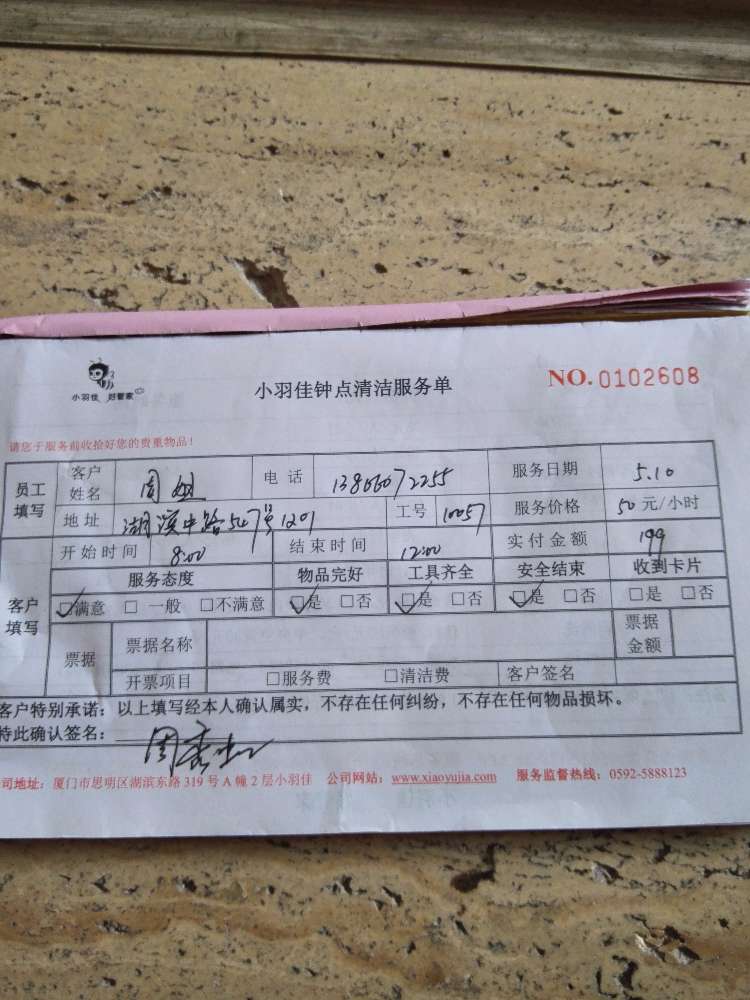 小羽佳 好管家
小羽佳钟点清洁服务单
NO. 0102608
请您于服务前收拾好您的贵重物品！
员工填写 客户姓名 周姐 电话 13866072255 服务日期 5.10
地址 湖滨中路547号1201 工号 10057 服务价格 50元/小时
开始时间 8:00 结束时间 12:00 实付金额 199
客户填写 服务态度 物品完好 工具齐全 安全结束 收到卡片
☑满意 □一般 □不满意 ☑是 □否 ☑是 □否 ☑是 □否 □是 □否
票据 票据名称 票据金额
开票项目 □服务费 □清洁费 客户签名
客户特别承诺：以上填写经本人确认属实，不存在任何纠纷，不存在任何物品损坏。
特此确认签名： 周
司地址：厦门市思明区湖滨东路319号A幢2层小羽佳 公司网站：www.xiaoyujia.com 服务监督热线：0592-5888123